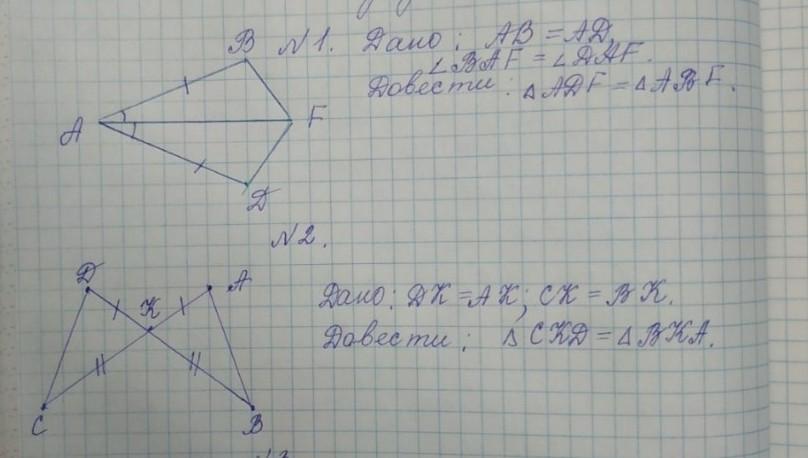 N1. Дано: AB = AD,
∠BAF = ∠DAF.
Довести: △ADF = △ABF.
B
A
F
D
N2.
D
A
K
C
B
Дано: DK = AK; CK = BK.
Довести: △CKD = △BKA.